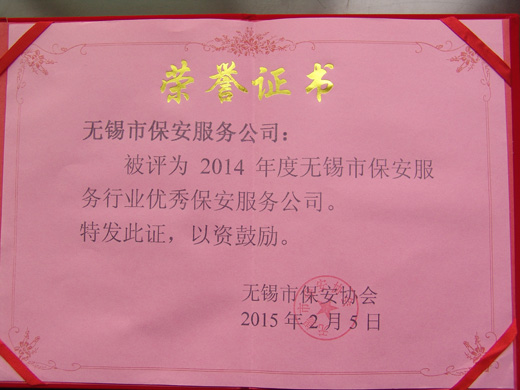 荣誉证书
无锡市保安服务公司：
被评为 2014 年度无锡市保安服
务行业优秀保安服务公司。
特发此证，以资鼓励。
无锡市保安协会
2015 年 2 月 5 日